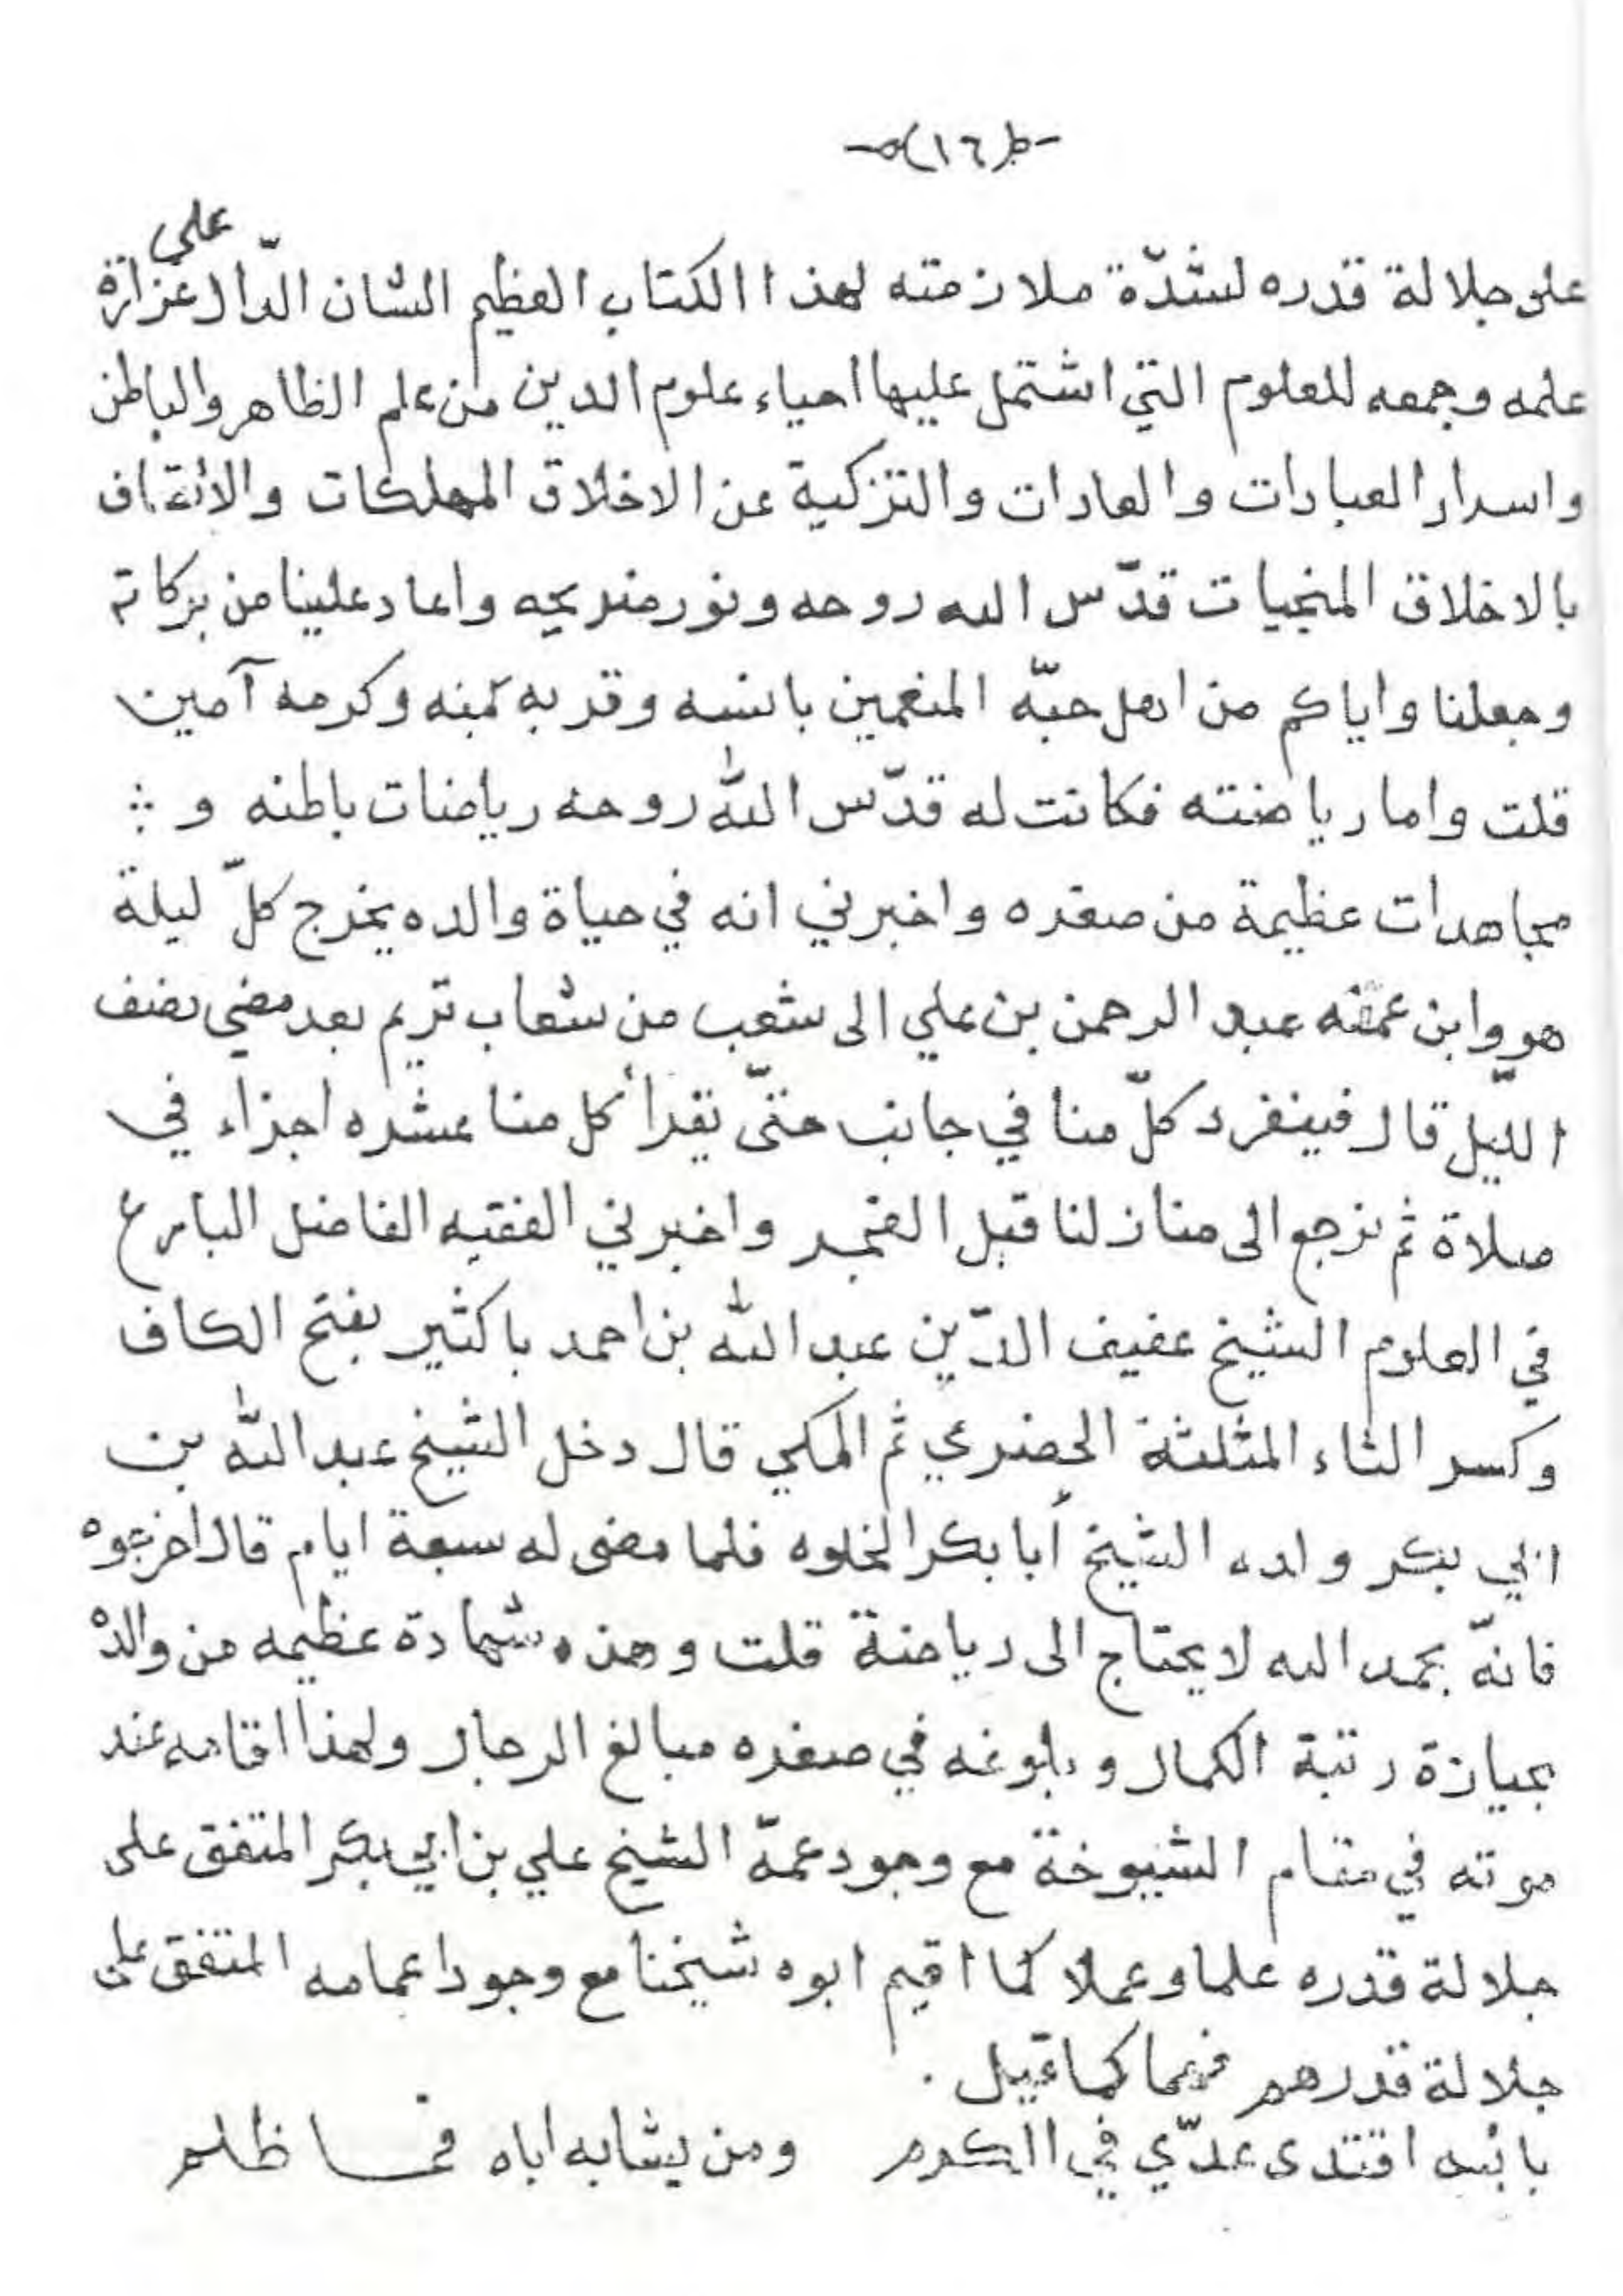 -(١٦)-
علي
على جلالة قدره لشدّة ملازمته لهذا الكتاب العظيم الشان الدّال غزارة
علمه وجمعه للعلوم التي اشتمل عليها احياء علوم الدين من علم الظاهر والباطن
واسرار العبارات والعادات والتزكية عن الاخلاق المهلكات والاتصاف
بالاخلاق المنجيات قدّس الله روحه ونور ضريحه واعاد علينا من بركاته
وجعلنا واياكم من اهل حبّه المنعمين بانسه وقربه بمنه وكرمه آمين
قلت واما رياضته فكانت له قدّس اللّه روحه رياضات باطنه و
مجاهدات عظيمة من صغره واخبرني انه في حياة والده يخرج كلّ ليلة
هو وابن عمه عبد الرحمن بن علي الى شعب من شعاب تريم بعد مضي نصف
الليّل قال فينفرد كلّ منا في جانب حتّى يقرأ كل منا عشره اجزاء في
صلاة ثم نرجع الى منازلنا قبل الفجر واخبرني الفقيه الفاضل البارع
في العلوم الشيخ عفيف الدّين عبد اللّه بن احمد باكثير بفتح الكاف
وكسر الثاء المثلثة الحضرمي ثم المكي قال دخل الشيخ عبد اللّه بن
ابي بكر ولده الشيخ أبا بكر الخلوه فلما مضى له سبعة ايام قال اخرجوه
فانهّ بحمد الله لا يحتاج الى رياضة قلت وهذه شهادة عظيمه من والده
بحيازة رتبة الكمال وبلوغه في صغره مبالغ الرجال ولهذا اقامه عند
موته في مقام الشيوخة مع وجود عمّه الشيخ علي بن ابي بكر المتفق على
جلالة قدره علما وعملا كما اقيم ابوه شيخنا مع وجود اعمامه المتفق على
جلالة قدرهم فهما كما قيل .
بابه اقتدى عدّي في الكرم ومن يشابه اباه فما ظلم